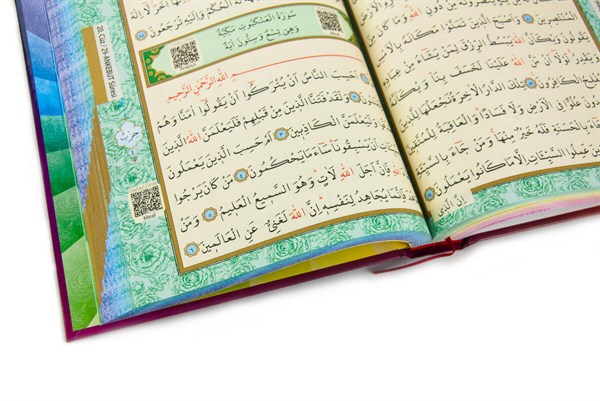 الْمُنْتَصِرِينَ وَاَصْبَحَ الَّذِينَ تَمَنَّوْا مَكَانَهُ بِالْاَمْسِ
وَيْكَاَنَّ اللّٰهَ يَبْسُطُ الرِّزْقَ لِمَنْ يَشَاءُ مِنْ عِبَادِهِ
وَيَقْدِرُ لَوْلَا اَنْ مَنَّ اللّٰهُ عَلَيْنَا لَخَسَفَ بِنَا وَيْكَاَنَّهُ
يُفْلِحُ الْكَافِرُونَ تِلْكَ الدَّارُ الْاٰخِرَةُ نَجْعَلُهَا لِلَّذِينَ
عُلُوًّا فِى الْاَرْضِ وَلَا فَسَادًا وَالْعَاقِبَةُ لِلْمُتَّقِينَ
بِالْحَسَنَةِ فَلَهُ خَيْرٌ مِنْهَا وَمَنْ جَاءَ بِالسَّيِّئَةِ
عَمِلُوا السَّيِّئَاتِ اِلَّا مَا كَانُوا يَعْمَلُونَ
اِنَّ الَّذِى
لَهُ الْحُكْمُ وَاِلَيْهِ تُرْجَعُونَ
سُورَةُ الْعَنْكَبُوتِ مَكِّيَّةٌ
وَهِيَ تِسْعٌ وَسِتُّونَ اٰيَةً
بِسْمِ اللّٰهِ الرَّحْمٰنِ الرَّحِيمِ
اَحَسِبَ النَّاسُ اَنْ يُتْرَكُوا اَنْ يَقُولُوا اٰمَنَّا وَهُمْ
وَلَقَدْ فَتَنَّا الَّذِينَ مِنْ قَبْلِهِمْ فَلَيَعْلَمَنَّ اللّٰهُ الَّذِينَ
وَلَيَعْلَمَنَّ الْكَاذِبِينَ ٣ اَمْ حَسِبَ الَّذِينَ يَعْمَلُونَ
اَنْ يَسْبِقُونَا سَاءَ مَا يَحْكُمُونَ ٤ مَنْ كَانَ يَرْجُوا
اللّٰهِ فَاِنَّ اَجَلَ اللّٰهِ لَاٰتٍ وَهُوَ السَّمِيعُ الْعَلِيمُ ٥ وَمَنْ
فَاِنَّمَا يُجَاهِدُ لِنَفْسِهِ اِنَّ اللّٰهَ لَغَنِىٌّ عَنِ الْعَالَمِينَ ٦
20. Cüz 29-ANKEBUT Sûresi
حزب
Meal